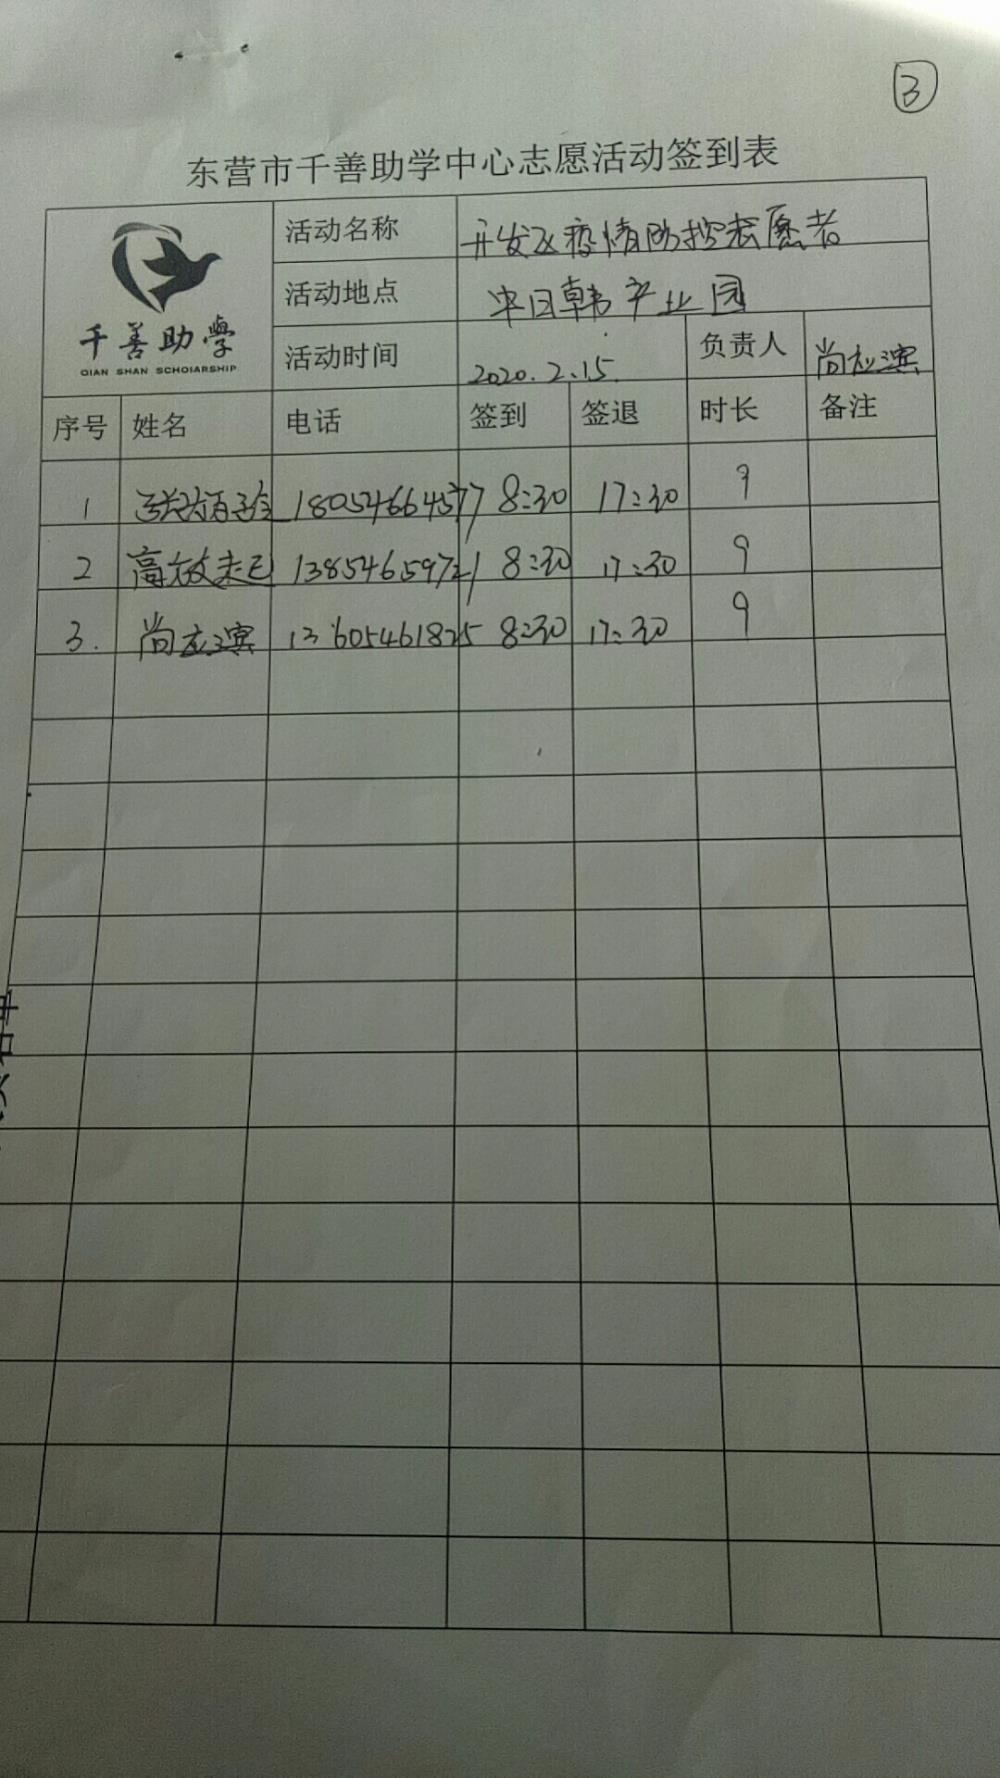 3
东营市千善助学中心志愿活动签到表
千善助學
QIAN SHAN SCHOIARSHIP
活动名称 开发区疫情防控志愿者
活动地点 中日韩产业园
活动时间 2020.2.15. 负责人 尚应滨
序号 姓名 电话 签到 签退 时长 备注
1 18054664577 8:30 17:30 9
2 高 13854659721 8:30 17:30 9
3. 尚应滨 13605461825 8:30 17:30 9
名单